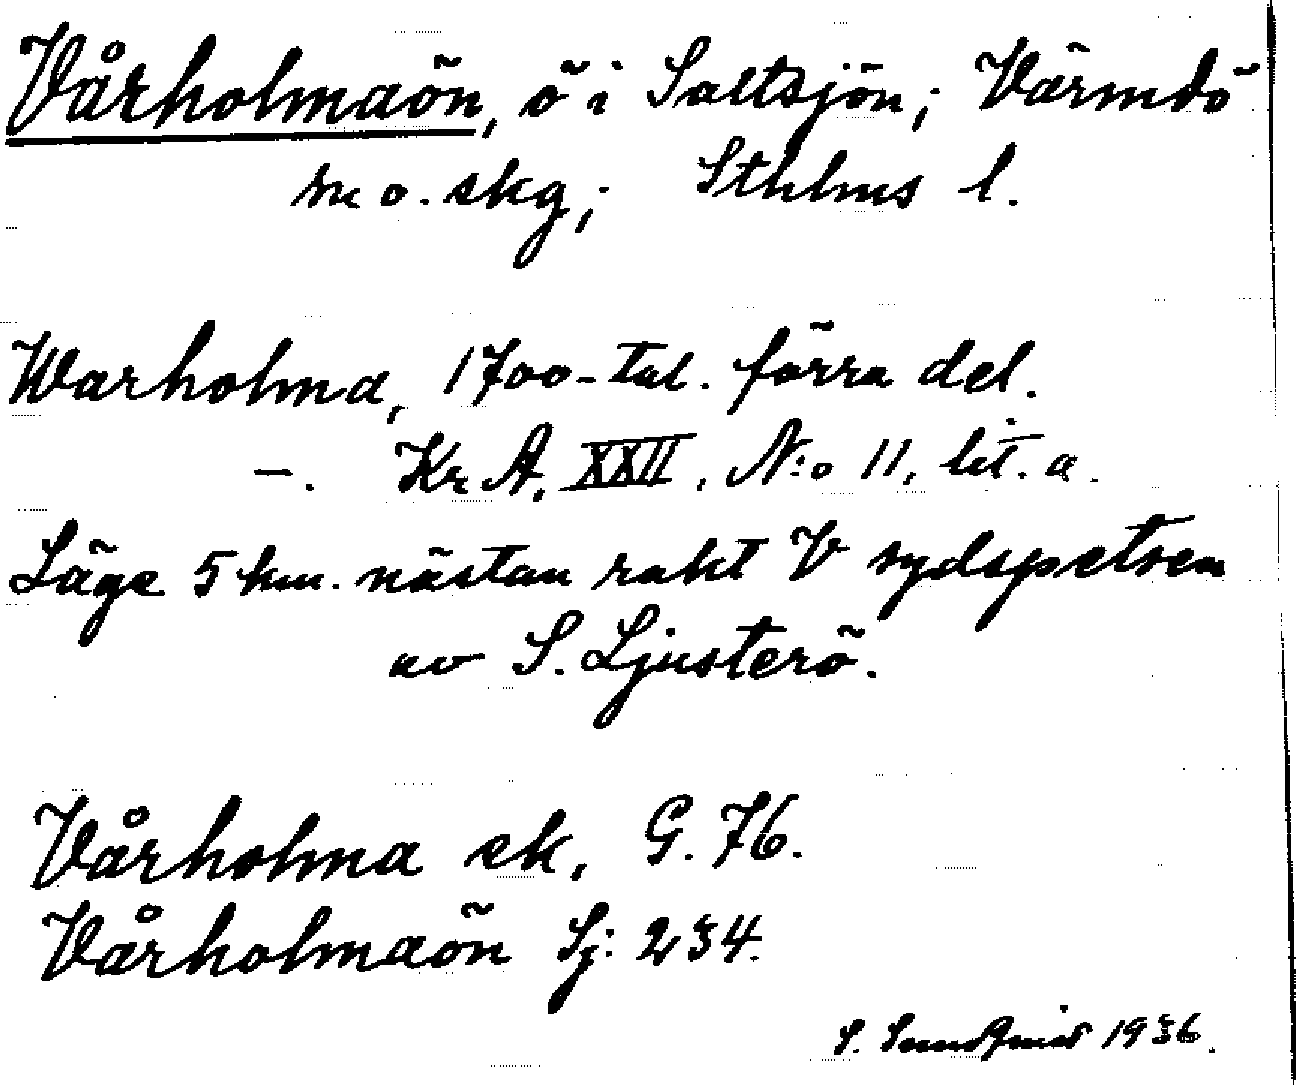 Vårholmaön, ö i Saltsjön; Värmdö
sn o. skg; Sthlms l.
Warholma, 1700-tal. förra del.
—. Kr A, XXII, N:o 11, lit. a.
Läge 5 km. nästan rakt V sydspetsen
av S. Ljusterö.
Vårholma ek, G. 76.
Vårholmaön Sj: 234.
S. Sundqvist 1936.